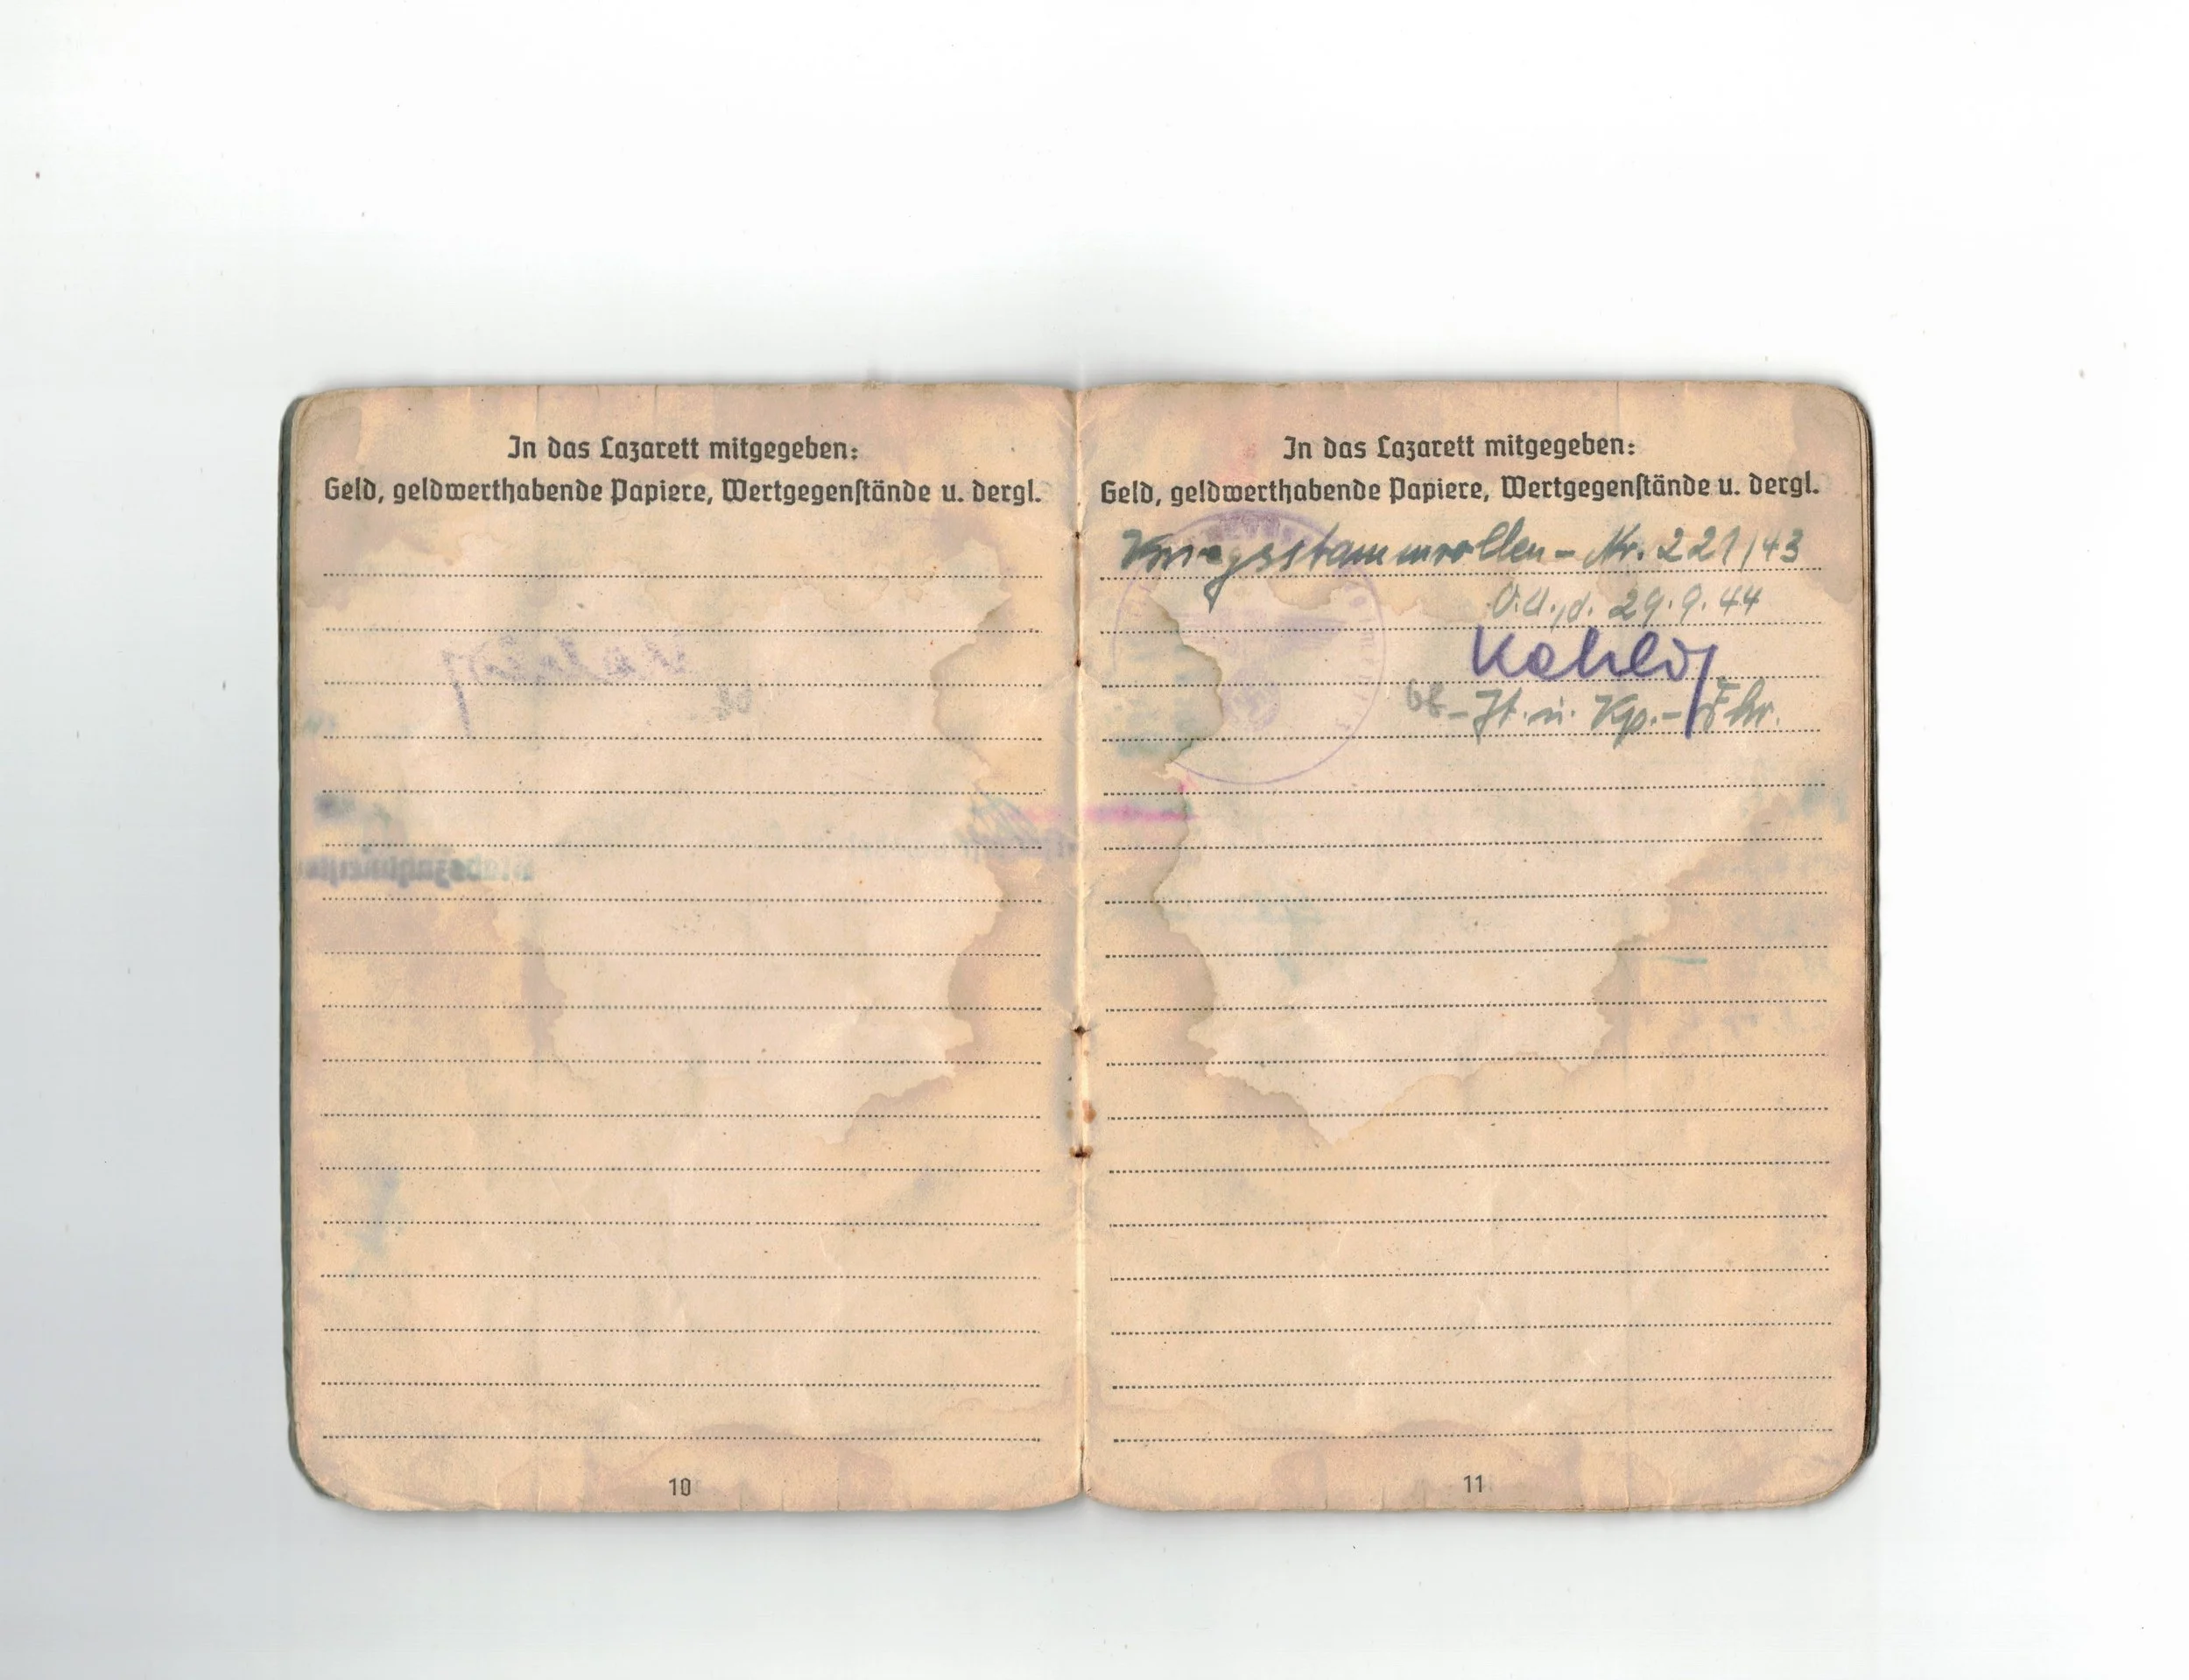 In das Lazarett mitgegeben:
Geld, geldwerthabende Papiere, Wertgegenstände u. dergl.
10
In das Lazarett mitgegeben:
Geld, geldwerthabende Papiere, Wertgegenstände u. dergl.
Kriegsstammrollen-Nr. 221/43
O.U., d. 29.9.44
u. Kp.-Fhr.
11